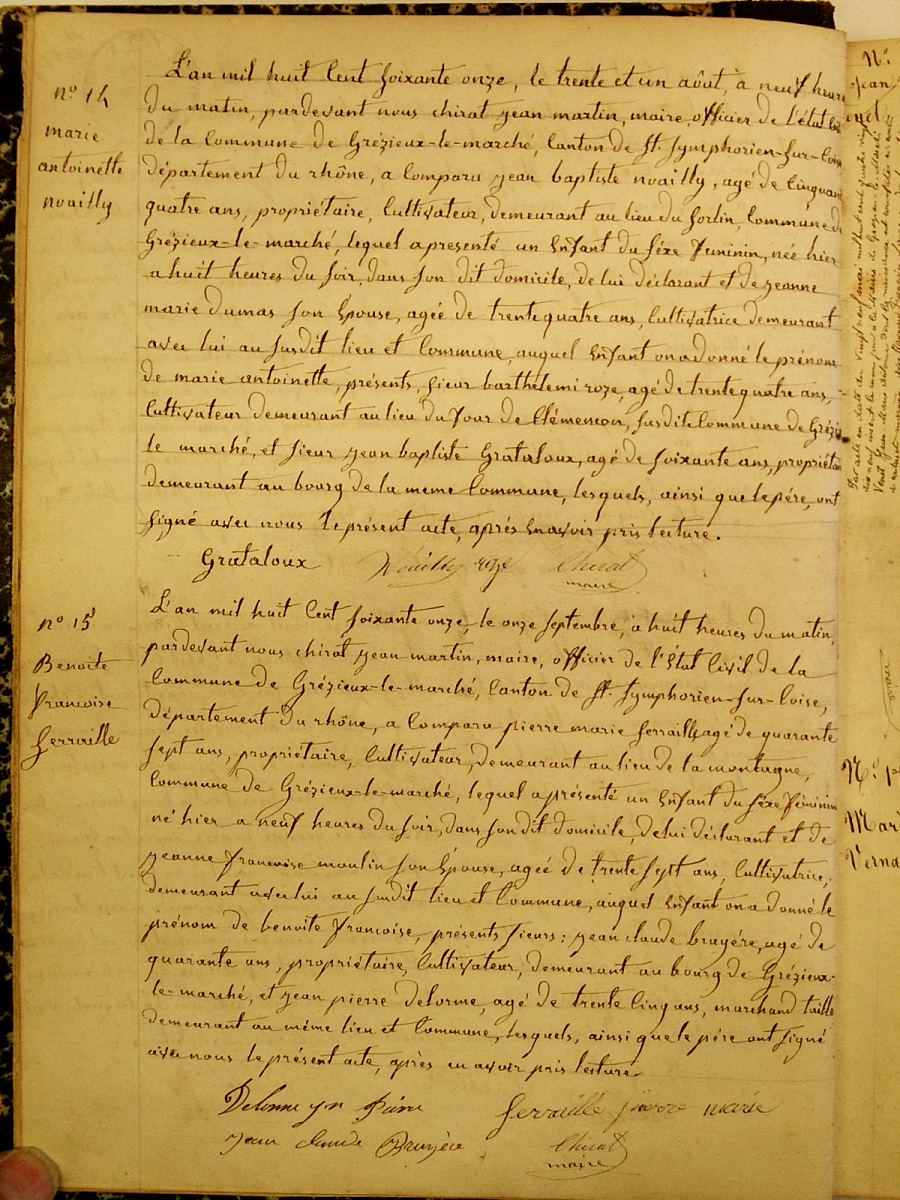 n° 14
marie
antoinette
noailly
L'an mil huit Cent soixante onze, le trente et un août, à neuf heure
du matin, pardevant nous chirat jean martin, maire, officier de l'état
de la Commune de Grézieux-le-marché, Canton de St. Symphorien-sur-Coise
département du rhône, a Comparu jean baptiste noailly, agé de Cinquante
quatre ans, propriétaire, Cultivateur, demeurant au lieu du Sorlin, Commune de
Grézieux-le-marché, lequel a presenté un Enfant du Séxe Feminin, née hier
a huit heures du soir, dans son dit domicile, de lui déclarant et de jeanne
marie dumas son Epouse, agée de trente quatre ans, Cultivatrice demeurant
avec lui au susdit lieu et Commune, auquel Enfant on a donné le prénom
de marie antoinette, présents, sieur barthélemi roze, agé de trente quatre ans,
Cultivateur demeurant au lieu du Four de Clémençon, susdite Commune de Grézieux
le marché, et sieur jean baptiste Grataloux, agé de soixante ans, propriétaire
demeurant au bourg de la meme Commune, lesquels, ainsi que le pére, ont
signé avec nous le présent acte, aprés En avoir pris lecture.
Grataloux Noailly roze Chirat
maire
n° 15
Benoite
francoise
ferraille
L'an mil huit Cent soixante onze, le onze septembre, à huit heures du matin,
pardevant nous chirat jean martin, maire, officier de l'État Civil de la
Commune de Grézieux-le-marché, Canton de St. Symphorien-sur-Coise,
département du rhône, a Comparu pierre marie ferraille agé de quarante
sept ans, propriétaire, Cultivateur, demeurant au lieu de la montagne,
Commune de Grézieux-le-marché, lequel a présenté un Enfant du séxe Féminin
né hier a neuf heures du soir, dans son dit domicile, de lui déclarant et de
jeanne francoise moulin son Epouse, agée de trente sept ans, Cultivatrice,
demeurant avec lui au susdit lieu et Commune, auquel Enfant on a donné le
prénom de benoite francoise, présents sieurs: jean claude bruyére, agé de
quarante ans, propriétaire, Cultivateur, demeurant au bourg de Grézieux-
le-marché, et jean pierre delorme, agé de trente Cinq ans, marchand taille
demeurant au méme lieu et Commune, lesquels, ainsi que le pére ont signé
avec nous le présent acte, après en avoir pris lecture.
Delorme jn Pierre ferraille pierre marie
Jean claude Bruyère Chirat
maire
N°
Jean
N°
Mari
Verna